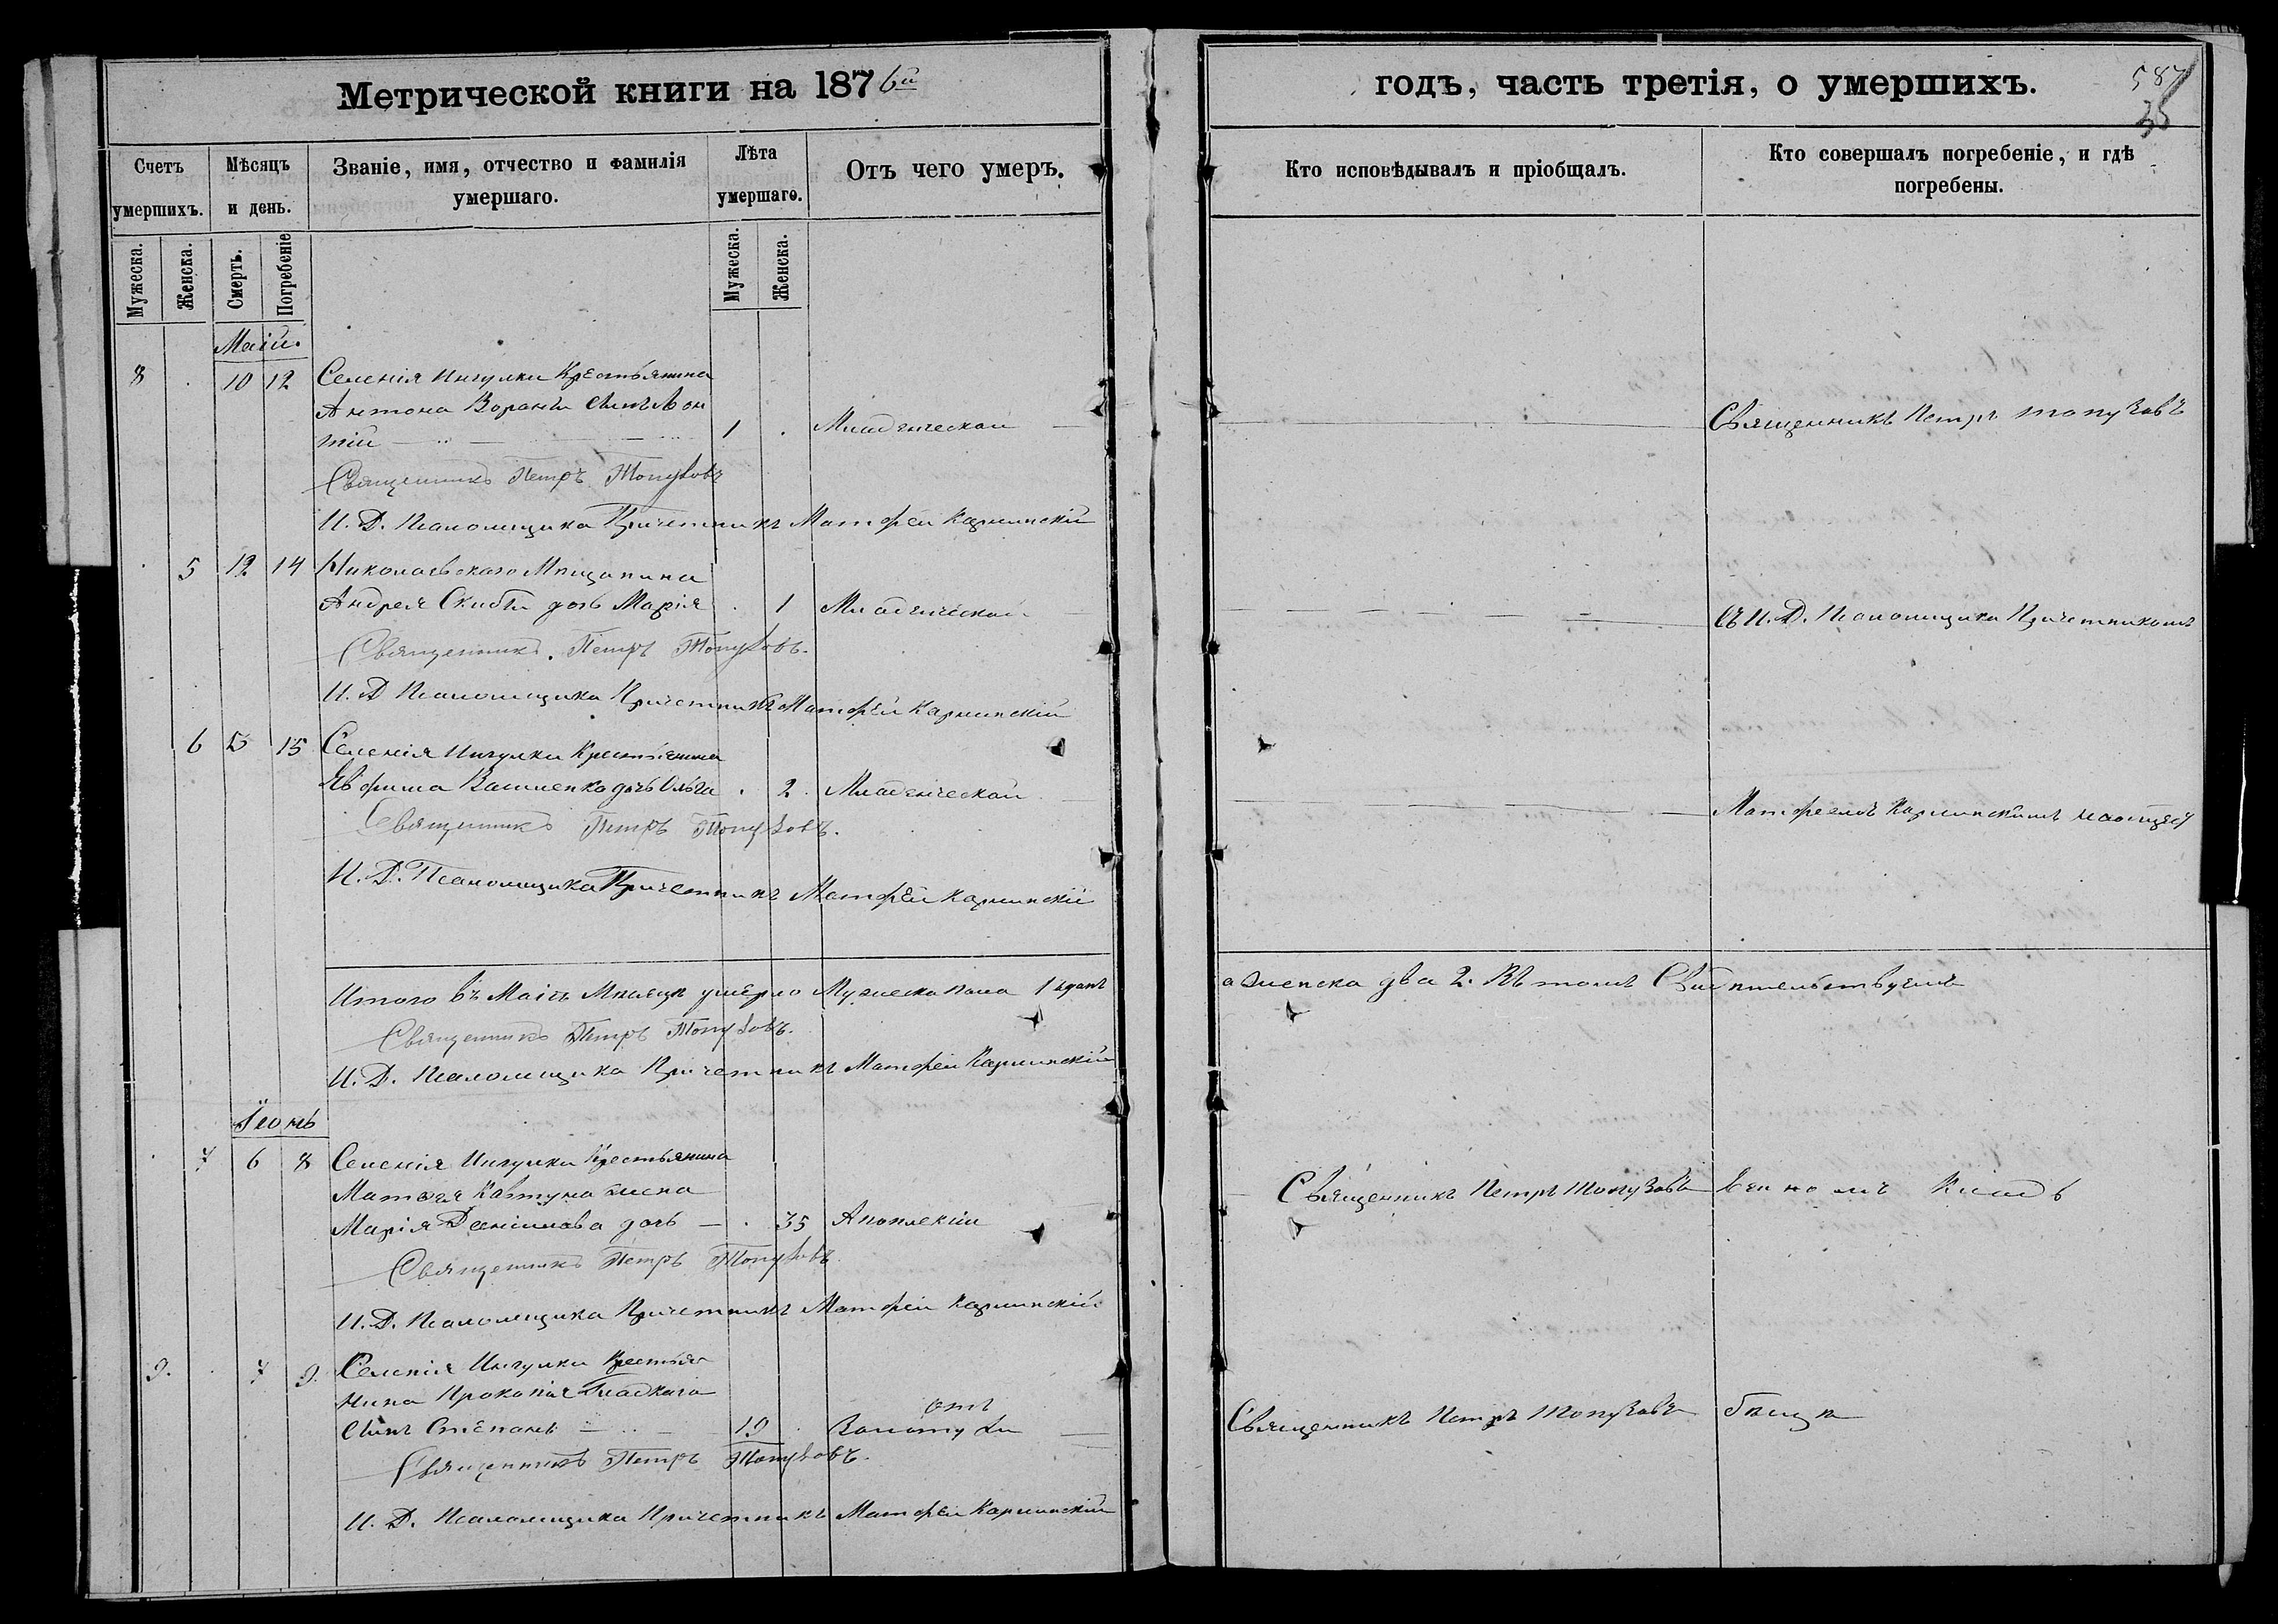 Метрической книги на 1876й
годъ, часть третія, о умершихъ.
587
35
Счетъ умершихъ.
Мѣсяцъ и день.
Званіе, имя, отчество и фамилія умершаго.
Лѣта умершаго.
Отъ чего умеръ.
Кто исповѣдывалъ и пріобщалъ.
Кто совершалъ погребеніе, и гдѣ погребены.
Мужеска.
Женска.
Смерть.
Погребеніе
Мужеска.
Женска.
Маій.
8 10 12 Селенія Ингулки Крестьянина
Антона сынъ Леон
тій 1 Младенческой Священникъ Петръ Топузовъ
Священникъ Петръ Топузовъ
И. Д. Псаломщика Причетникъ Матфей Карминскій
5 12 14 Николаевскаго Мѣщанина
Андрея Скибы дочь Марія 1 Младенческой съ И. Д. Псаломщика Причетникомъ
Священникъ Петръ Топузовъ.
И. Д Псаломщика Причетникъ Матфей Карминскій
6 15 Селенія Ингулки Крестьянина
Евфима дочь Ольга 2 Младенческой Матфеемъ Карминскимъ
Священникъ Петръ Топузовъ.
И. Д. Псаломщика Причетникъ Матфей Карминскій
Итого въ Маіѣ Мѣсяцѣ умерло Мужеска пола 1 одинъ
а женска два 2. Въ томъ Свидѣтельствуемъ
Священникъ Петръ Топузовъ.
И. Д. Псаломщика Причетникъ Матфей Карминскій
Іюнь
7 6 8 Селенія Ингулки Крестьянина
Матвея Ковтуна жена Священникъ Петръ Топузовъ
Марія дочь 35 Апоплекціи
Священникъ Петръ Топузовъ
И. Д. Псаломщика Причетникъ Матфей Карминскій
9. 7 9. Селенія Ингулки Крестья
нина Прокопія Гладкаго отъ
сынъ Степанъ 19 Золотухи Священникъ Петръ Топузовъ бищѣ
Священникъ Петръ Топузовъ.
И. Д. Псаломщика Причетникъ Матфей Карминскій